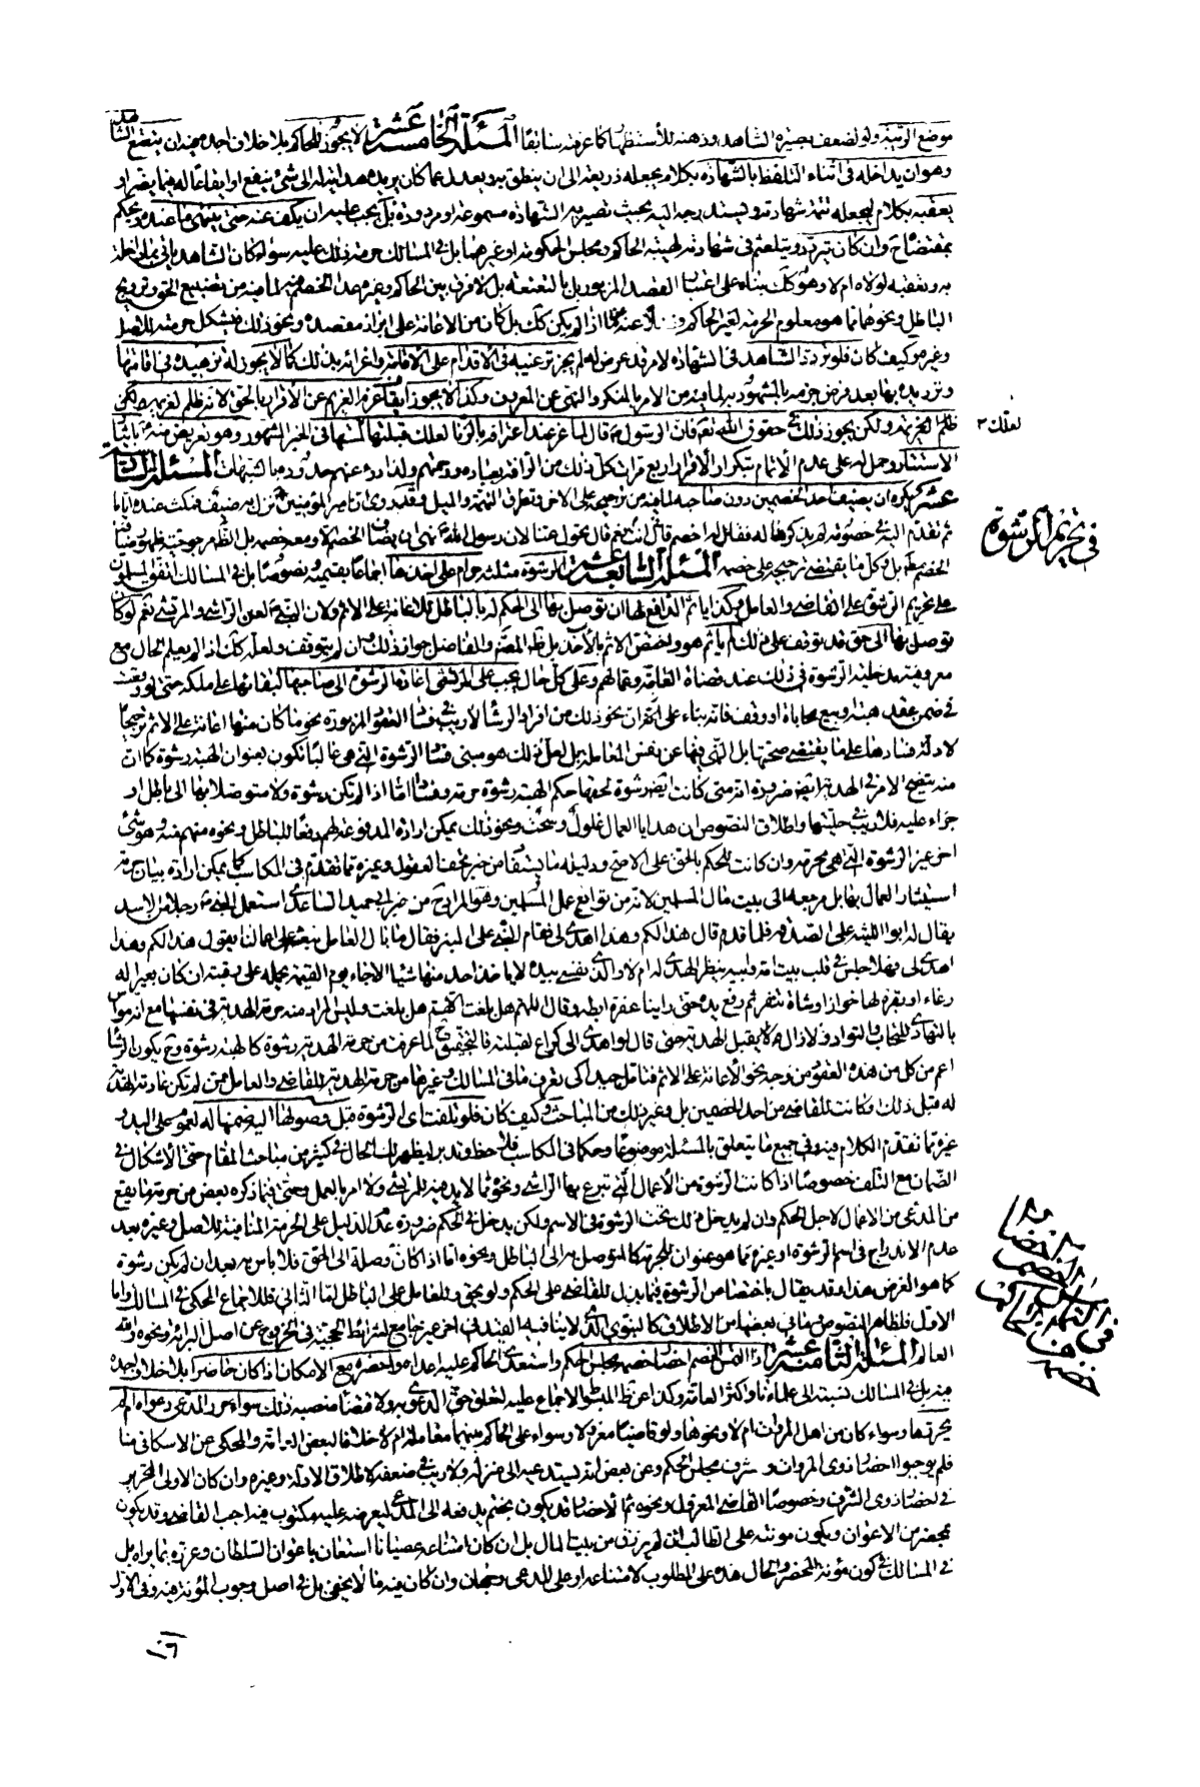 موضع الريبة ولو لضعف بصيرة الشاهد وذهنه للاستظهار كما عرفته سابقا المسئلة الخامسة عشر لا يجوز للحاكم بلا خلاف اجده بيننا ان يتعتع الشاهد
وهو ان يداخله في اثناء التلفظ بالشهادة بكلام يجعله ذريعة الى ان ينطق به ويعدل عما كان يريده هداية له الى شئ ينفع او ايقاعا له فيما يضر او
يعقبه بكلام ليجعله تتمة شهادته ويستدرجه اليه بحيث تصير به الشهادة مسموعة او مردودة بل يجب عليه ان يكف عنه حتى ينتهي ما عنده ويحكم
بمقتضاه وان كان يتردد ويتلعثم في شهادته لهيبة الحاكم ومجلس الحكومة او غيرهما بل في المسالك حرمة ذلك عليه سواء كان الشاهد ياتي بما داخله
به وتعقبه لولاه ام لا وهو كك بناء على اعتبار القصد المزبور بل بالتعتعة بل لا فرق بين الحاكم وغيره حتى الخصم فيه لما فيه من تضييع الحق وترويج
الباطل ونحوهما مما هو معلوم الحرمة لغير الحاكم اذا لم يكن كك بل كان من الاعانة على ابراز مقصده ونحو ذلك فيشكل حرمته للاصل
وغيره وكيف كان فلو تردد الشاهد في الشهادة لامر قد عرض له لم يجز ترغيبه في الاقدام على الاقامة واغرائه بذلك كما لا يجوز له تزهيده في اقامتها
وترديده بها بعد فرض جزمه بالمشهود به لما فيه من الامر بالمنكر والنهي عن المعروف وكذا لا يجوز ايقاف عزم الغريم عن الاقرار بالحق لانه ظلم لغريمه
ظلم لغريمه ولكن يجوز ذلك في حقوق الله تعالى فان الرسول ص قال لماعز عند اعترافه بالزنا لعلك قبلتها لمستها في الخبر المشهور وهو تعريض منه بايثار
لعلك
الاستتار وحمل له على عدم الاتمام بتكرار الاقرار اربع مرات كل ذلك من الرافة بعباده ورحمتهم ولذا درء عنهم حدوده بالشبهات المسئلة السادسة
عشر يكره ان يضيف احد الخصمين دون صاحبه لما فيه من ترجيحه على الاخر وتطرق التهمة والميل وقد روى ان امير المؤمنين ع نزل به ضيف فمكث عنده اياما
ثم تقدم اليه في خصومة لم يذكرها له فقال له اخصم قال انت نعم قال تحول عنا لان رسول الله ص نهى ان يضاف الخصم الا ومعه خصمه بل الظاهر
الخصم بل وكل ما يقتضي ترجيحه على خصمه المسئلة السابعة عشر الرشوة مثلثة حرام على اخذها اجماعا بقسميه ونصوصا بل في المسالك اتفق المسلمون
في تحريم الرشوة
على تحريم الرشوة على القاضي والعامل وكذا ياثم الدافع لها ان توصل بها الى الحكم له بالباطل للاعانة على الاثم ولان النبي ص لعن الراشي والمرتشي نعم لو كان
توصل بها الى حق قد توقف على ذلك لم ياثم هو ويختص الاثم بالاخذ بل ظاهر المصنف والفاضل جواز ذلك وان لم يتوقف ولعله كك اذا لم يعلم الحال مع
معروفية مدخلية الرشوة في ذلك عند قضاة العامة وعمالهم وعلى كل حال يجب على المرتشي اعادة الرشوة الى صاحبها لبقائها على ملكه حتى لو وقعت
في ضمن عقد هبة او بيع محاباة او وقف فانه بناء على ان نحو ذلك من افراد الرشا لا ريب في فساد العقود المزبورة نحو ما كان منها اعانة على الاثم ترجيحا
لادلة فسادها على ما يقتضي صحتها بل النهي فيها عن نفس المعاملة بل لعل ذلك هو مبنى فساد الرشوة التي هي غالبا تكون بعنوان الهبة رشوة كما ان
منه يتضح الامر في الهدية ايضا ضرورة انه متى كانت ايضا رشوة لحقها حكم الهبة رشوة حرمة وفسادا اما اذا لم تكن رشوة ولا متوصلا بها الى باطل او
جزاء عليه فلا ريب في حليتها واطلاق النصوص ان هدايا العمال غلول وسحت ونحو ذلك يمكن ارادة المدفوعة لهم دفعا للباطل ونحوه منهم منه وهو شئ
اخر غير الرشوة التي هي محرمة وان كانت للحكم بالحق على الاصح ودليله ما يستفاد من خبر تحف العقول وغيره مما تقدم في المكاسب كما يمكن ارادة بيان حرمة
استيثار العمال بها بل مرجعه الى بيت مال المسلمين لانه من توابع عمل المسلمين وهو المراد من خبر ابي حميد الساعدي استعمل النبي ص رجلا من الاسد
يقال له ابو اللبية على الصدقة فلما قدم قال هذا لكم وهذا اهدي لي فقام النبي على المنبر فقال ما بال العامل نبعثه على اعمالنا يقول هذا لكم وهذا
اهدي لي فهلا جلس في قلب بيت امه وابيه ينظر ايهدى له ام لا والذي نفسي بيده لا ياخذ احد منها شيئا الا جاء يوم القيمة يحمله على رقبته ان كان بعيرا له
رغاء او بقرة لها خوار او شاة تنعر ثم رفع يده حتى راينا عفرة ابطيه وقال اللهم هل بلغت اللهم هل بلغت وليس المراد منه حرمة الهدية في نفسها مع انه مر
بالتهادي للتحاب والتوادد ولا زال ص يقبل الهدية حتى قال لو اهدي الى كراع لقبلته فالتحقيق ح لما عرفت من حرمة الهدية رشوة كالهبة رشوة وح يكون الرشا
اعم من كل من هذه العقود من وجه نحو الاعانة على الاثم فتامل جيدا كي تعرف ما في المسالك وغيرها من حرمة الهدية للقاضي والعامل ممن لم تكن عادته الهدية
له قبل ذلك او كانت للقاضي من احد الخصمين بل وغير ذلك من المباحث وكيف كان فلو تلفت اي الرشوة قبل وصولها اليه ضمنها له لعموم على اليد و
غيره مما تقدم الكلام فيه وفي جميع ما يتعلق بالمسئلة موضوعا وحكما في المكاسب فلاحظ وتدبر ليظهر لك الحال في كثير من مباحث المقام حتى الاشكال في
الضمان مع التلف خصوصا اذا كانت الرشوة من الاعمال التي تبرع بها الراشي ونحوه مما لا يد فيه للمرتشي ولا امر بالعمل وحتى فيما ذكره بعض من حرمة ما يقع
من المدعي من الاعمال لاجل الحكم وان لم يدخل ذلك تحت الرشوة في الاسم ولكن يدخل في الحكم ضرورة عدم الدليل على الحرمة المنافية للاصل وغيره بعد
عدم الاندراج في اسم الرشوة او غيره مما هو عنوان للحرمة كالتوصل به الى الباطل ونحوه اما اذا كان وصلة الى الحق فلا باس به بعد ان لم يكن رشوة
كما هو الفرض هذا وقد يقال باختصاص الرشوة فيما يبذل للقاضي على الحكم ولو بحق وللعامل على الباطل اما الثاني فللاجماع المحكي في المسالك واما
الاول فلظاهر النصوص وما في بعضها من الاطلاق كالنبوي الذي لا ينافيه القيد في اخر غير جامع لشرائط الحجية في الخروج عن اصل البرائة ونحوه والله
العالم المسئلة الثامنة عشر اذا التمس الخصم احضار خصمه مجلس الحكم واستعدى الحاكم عليه اعداه واحضره مع الامكان اذا كان حاضرا بلا خلاف اجده
فيه بل في المسالك نسبته الى علمائنا واكثر العامة وكذا عن ظاهر المبسوط الاجماع عليه لتعلق حق الدعوى به ولاقتضاء منصبه ذلك سواء حرر المدعي دعواه ام لم
يحررها وسواء كان من اهل المروات ام لا ونحوها ولو قاضيا معزولا وسواء علم الحاكم بينهما معاملة ام لا خلافا لبعض العامة والمحكي عن الاسكافي منا
فلم يوجبوا احضار ذوي المروات وشرف مجلس الحكم وعن بعض انه يستدعيه الى منزله ولا ريب في ضعفه لاطلاق الادلة وغيره وان كان الاولى التحرير
في احضار ذوي الشرف وخصوصا القاضي المعزول ونحوه ثم الاحضار قد يكون بختم يدفعه الى المدعي ليعرضه عليه مكتوب فيه اجب القاضي وقد يكون
بمحضر من الاعوان ويكون مؤنته على الطالب ان لم يرزق من بيت المال بل ان كان امتناعه عصيانا استعان باعوان السلطان وعزره بما يراه بل
في المسالك في كون مؤنة المحضر والحال هذه على المطلوب لامتناعه او على المدعي وجهان وان كان فيه ما لا يخفى بل في اصل وجوب المؤنة فيه وفي الاول